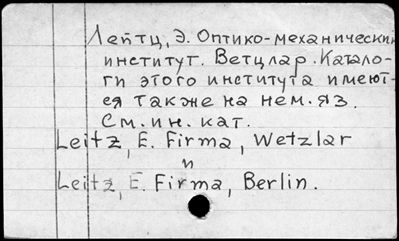 Лейтц, Э. Оптико-механический
институт. Ветцлар. Катало-
ги этого института имеют-
ся также на нем. яз.
См. ин. кат.
Leitz, E. Firma, Wetzlar
и
Leitz, E. Firma, Berlin.